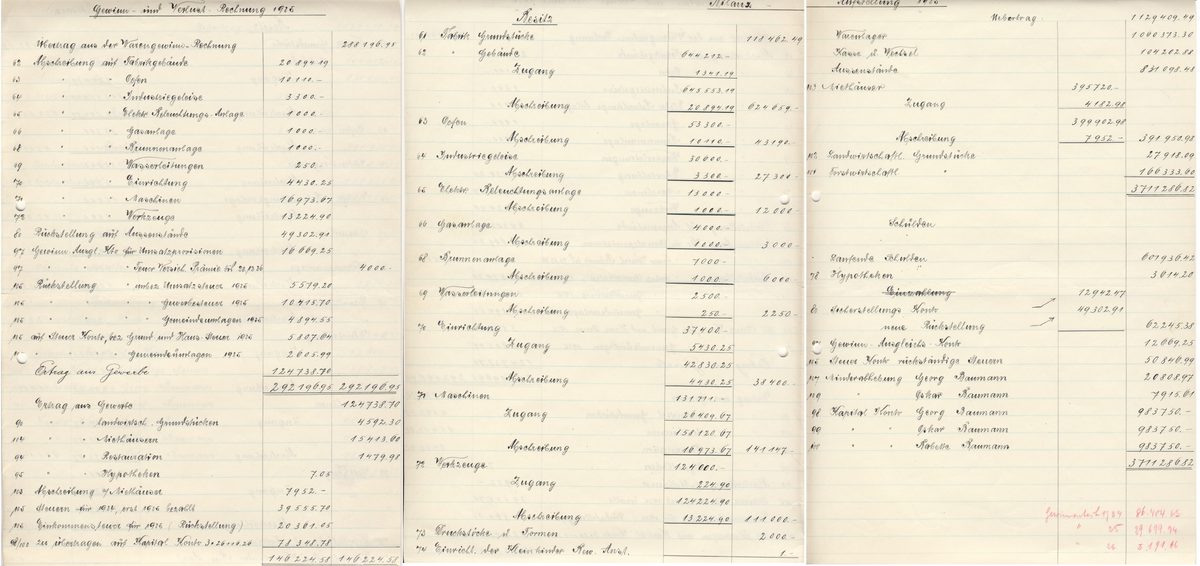 Gewinn- und Verlust-Rechnung 1926
Übertrag aus der Warengewinn-Rechnung 288196.95
62 Abschreibung auf Fabrikgebäude 20894.19
63 " " Oefen 10110.-
64 " " Industriegeleise 3300.-
65 " " Elektr. Beleuchtungs-Anlage 1000.-
66 " " Gasanlage 1000.-
68 " " Brunnenanlage 1000.-
69 " " Wasserleitungen 250.-
70 " " Einrichtung 4430.25
71 " " Maschinen 16973.67
72 " " Werkzeuge 13224.90
80 Rückstellung auf Aussenstände 49302.91
97 Gewinn Ausgl. Kto für Umsatzprovisionen 16669.25
97 " " " Feuer Versich. Prämie 4000.-
116 Rückstellung Umsatzsteuer 1926 5579.20
116 " " Gewerbesteuer 1926 10415.70
116 " " Gemeindeumlagen 1926 4894.55
116 auf Steuer Konto, bez. Grund und Haus Steuer 1926 5807.64
" " " Gemeindeumlagen 1926 2605.99
Ertrag aus Gewerbe 124738.70
292196.95 292196.95
Ertrag aus Gewerbe 124738.70
" landwirtsch. Grundstücken 4592.30
114 " Miethäusern 15413.60
94 " Restauration 1479.98
95 " Hypotheken 7.05
113 Abschreibung a/ Miethäuser 7952.-
116 Steuern für 1924, erst 1926 bezahlt 39555.70
116 Einkommensteuer für 1926 (Rückstellung) 20361.05
zu übertragen auf Kapital Konto 78348.78
146224.58 146224.58
Bilanz
Besitz
61 Fabrik Grundstücke 118462.49
62 " Gebäude 644212.-
Zugang 1341.19
645553.19
Abschreibung 20894.19 624659.-
63 Oefen 53300.-
Abschreibung 10110.- 43190.-
64 Industriegeleise 30600.-
Abschreibung 3300.- 27300.-
65 Elektr. Beleuchtungsanlage 13000.-
Abschreibung 1000.- 12000.-
66 Gasanlage 4000.-
Abschreibung 1000.- 3000.-
68 Brunnenanlage 7000.-
Abschreibung 1000.- 6000.-
69 Wasserleitungen 2500.-
Abschreibung 250.- 2250.-
70 Einrichtung 37400.-
Zugang 5430.25
42830.25
Abschreibung 4430.25 38400.-
71 Maschinen 131711.-
Zugang 26409.67
158120.67
Abschreibung 16973.67 141147.-
72 Werkzeuge 124000.-
Zugang 224.90
124224.90
Abschreibung 13224.90 111000.-
73 Druckstöcke u. Formen 2000.-
74 Einricht. der Kleinkinder Bew. Anst. 1.-
Aufstellung 1926
Uebertrag 1129409.49
Warenlager 1060373.30
Kasse u. Wechsel 104202.88
Aussenstände 831098.48
113 Miethäuser 395720.-
Zugang 4182.98
399902.98
Abschreibung 7952.- 391950.98
112 Landwirtschaftl. Grundstücke 27918.09
111 Forstwirtschaftl. " 166333.60
3711286.82
Schulden
Laufende Schulden 601936.42
78 Hypotheken 3614.20
Einzahlung 12942.47
80 Sicherstellungs Konto 49302.91
neue Rückstellung 62245.38
97 Gewinn-Ausgleichs-Konto 12669.25
116 Steuer Konto rückständige Steuern 50846.99
117 Minderabhebung Georg Baumann 20808.97
119 " Oskar Baumann 7915.61
98 Kapital Konto Georg Baumann 983750.-
99 " " Oskar Baumann 983750.-
100 " " Babette Baumann 983750.-
3711286.82
1924 86.404.65
" 25 29.699.94
" 26 3.191.16